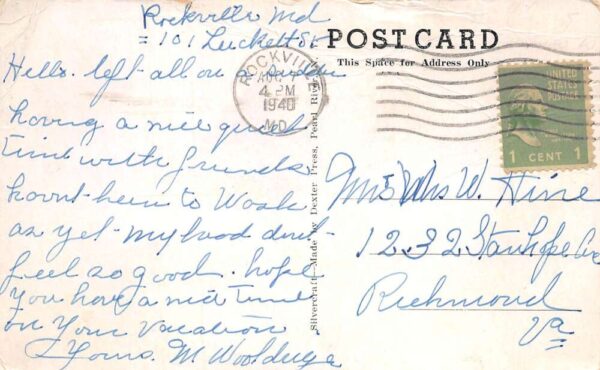 Rockville Md
= 101 Luckett St
Hello. left all on a sudden
having a nice quiet
time with friends
havnt been to Wash
as yet - my head dont
feel so good. hope
you have a nice time
on your vacation
Yours. M. Wooldridge
POST CARD
This Space for Address Only
ROCKVILLE
AUG
4 PM
1940
MD.
UNITED
STATES
POSTAGE
1 CENT 1
Silvercraft—Made by Dexter Press, Pearl River,
Mr & Mrs W. Hine
1232 Stanhope Ave
Richmond
Va